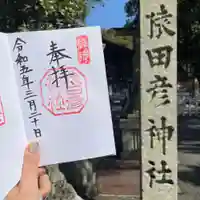 奉拝
令和五年三月二十日
猿田彦神社